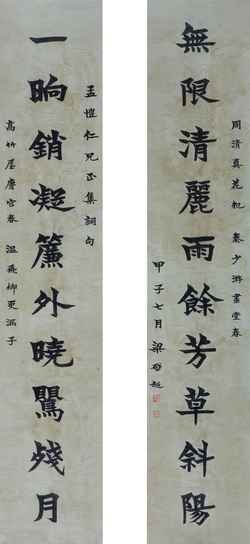 無限清麗雨餘芳草斜陽
周清真花犯　秦少游畫堂春
甲子七月　梁啓超
孟愷仁兄正集詞句
一晌銷凝簾外曉鶯殘月
高竹屋慶宮春　溫飛卿更漏子